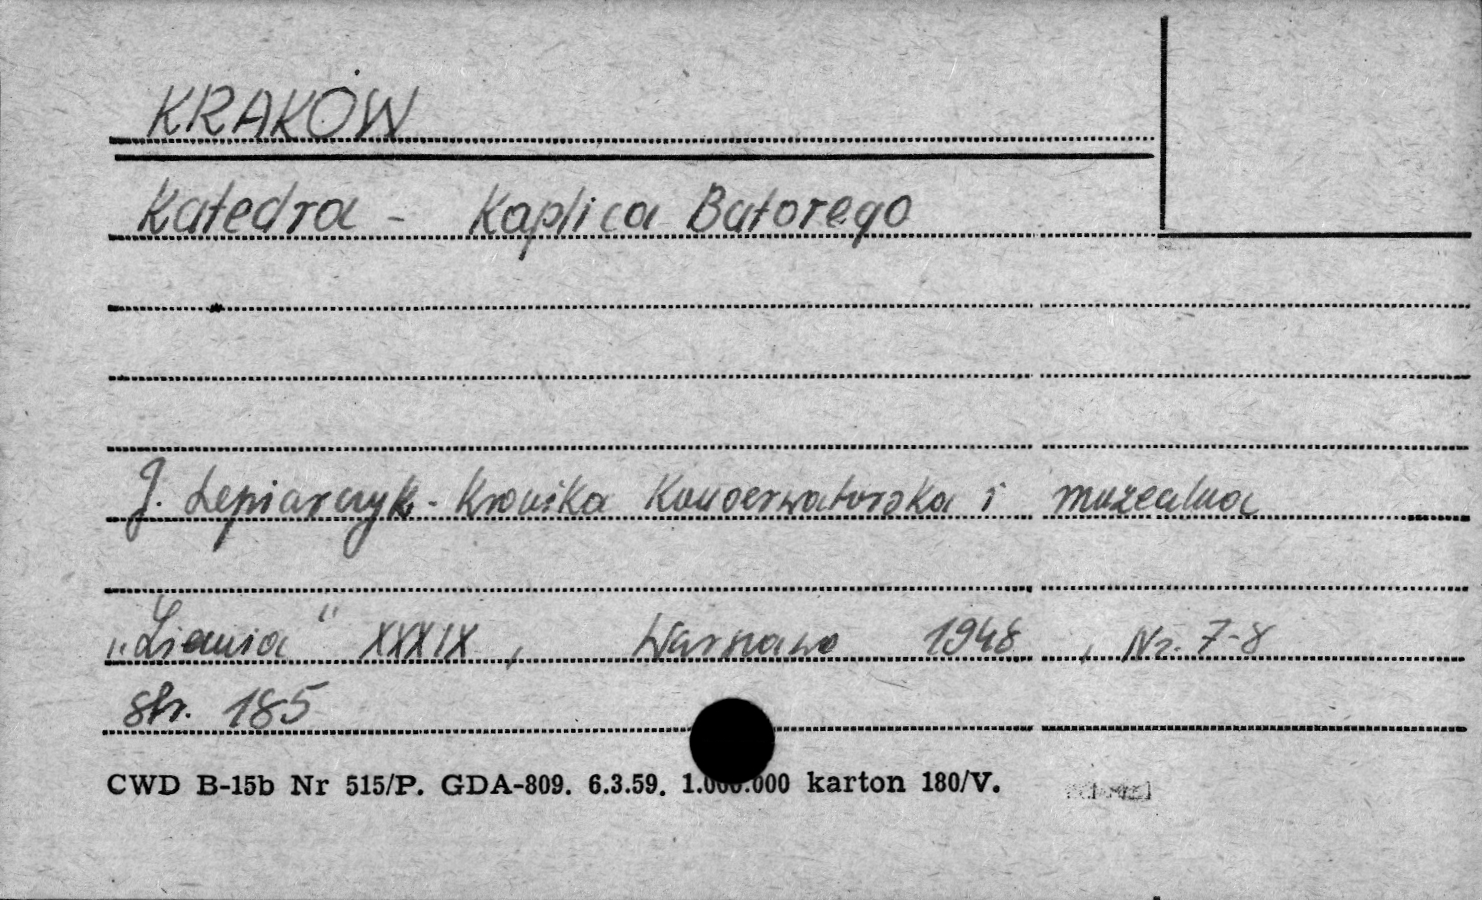 KRAKÓW
Katedra - Kaplica Batorego
J. Lepiarczyk - Kronika Konserwatorska i muzealna
„Ziemia" XXXIX, Warszawa 1948, Nr. 7-8
str. 185
CWD B-15b Nr 515/P. GDA-809. 6.3.59. 1.000.000 karton 180/V.